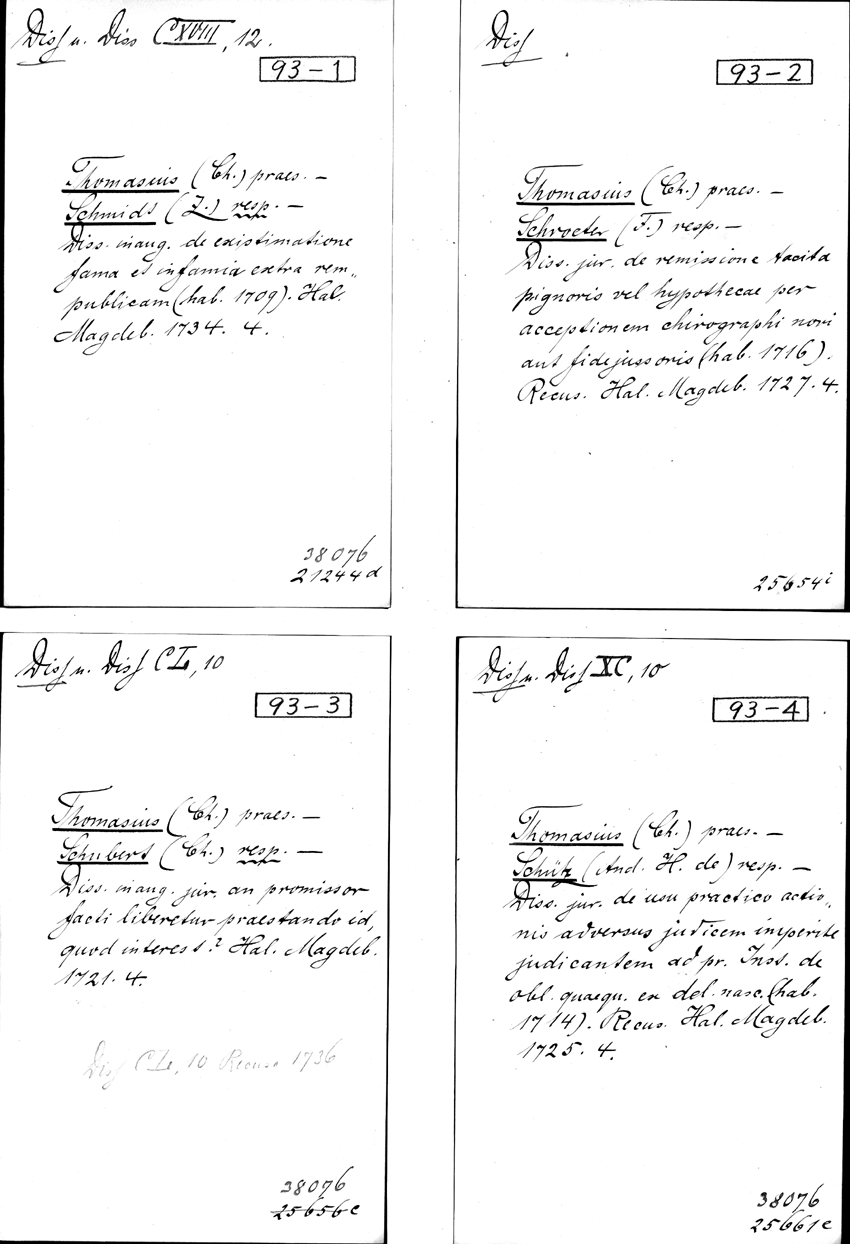 Diss u. Diss CXVIII, 12.
93-1
Thomasius (Ch.) praes. —
Schmidt (Z.) resp. —
Diss. inaug. de existimatione
fama et infamia extra rem„
publicam (hab. 1709). Hal.
Magdeb. 1734. 4.
38076
21244d
Diss
93-2
Thomasius (Ch.) praes. —
Schroeter (F.) resp. —
Diss. jur. de remissione tacita
pignoris vel hypothecae per
acceptionem chirographi novi
aut fidejussoris (hab. 1716).
Recus. Hal. Magdeb. 1727. 4.
25654i
Diss u. Diss CL, 10
93-3
Thomasius (Ch.) praes. —
Schubert (Ch.) resp. —
Diss. inaug. jur. an promissor
facti liberetur praestando id,
quod interest? Hal. Magdeb.
1721. 4.
Diss CL, 10 Recusa 1736
38076
25656c
Diss u. Diss XC, 10
93-4
Thomasius (Ch.) praes. —
Schütz (And. H. de) resp. —
Diss. jur. de usu practico actio„
nis adversus judicem imperite
judicantem ad pr. Inst. de
obl. quaequ. ex del. nasc. (hab.
1714). Recus. Hal. Magdeb.
1725. 4.
38076
25661c